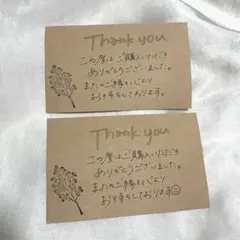 Thank you
この度はご購入いただき
ありがとうございました。
またのご縁を心より
お待ちしております。
Thank you
この度はご購入いただき
ありがとうございました。
またのご縁を心より
お待ちしております